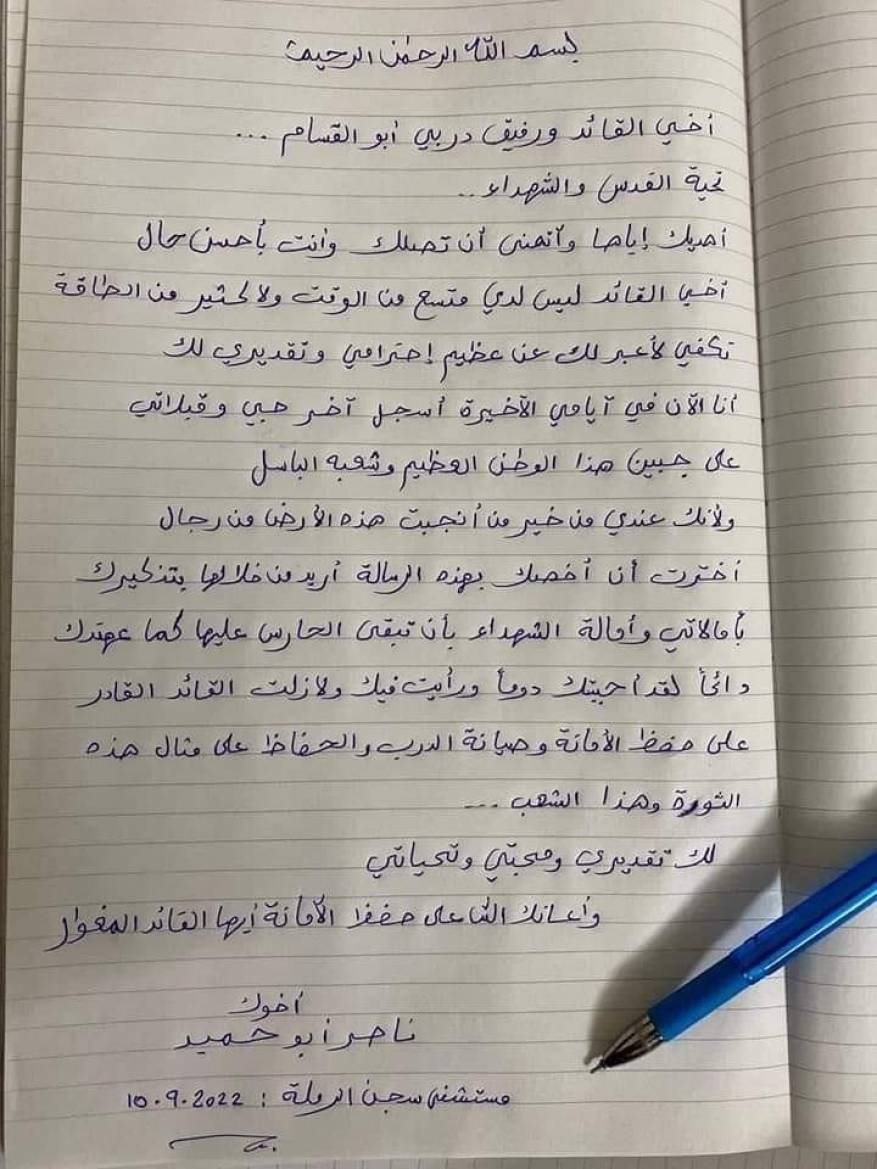 بسم الله الرحمن الرحيم
أخي القائد ورفيق دربي أبو القسام ...
تحية القدس والشهداء ..
أهديك إياها وأتمنى أن تصلك وأنت بأحسن حال
أخي القائد ليس لدي متسع من الوقت ولا كثير من الطاقة
تكفي لأعبر لك عن عظيم إحترامي وتقديري لك
أنا الآن في أيامي الأخيرة أسجل آخر حبي وقبلاتي
على جبين هذا الوطن العظيم وشعبه الباسل
ولأنك عندي من خير من أنجبت هذه الأرض من رجال
أخترت أن أخصك بهذه الرسالة أريد من خلالها بتذكيرك
بأمالاتي وأمالة الشهداء بأن تبقى الحارس عليها كما عهدك
دائماً لقد أحببتك دوماً ورأيت فيك ولازلت القائد القادر
على حفظ الأمانة وصيانة الدرب والحفاظ على منال هذه
الثورة وهذا الشعب ...
لك تقديري ومحبتي وتحياتي
وأعانك الله على حفظ الأمانة أيها القائد المغوار
أخوك
ناصر أبو حميد
مستشفى سجن الرملة : 10.9.2022